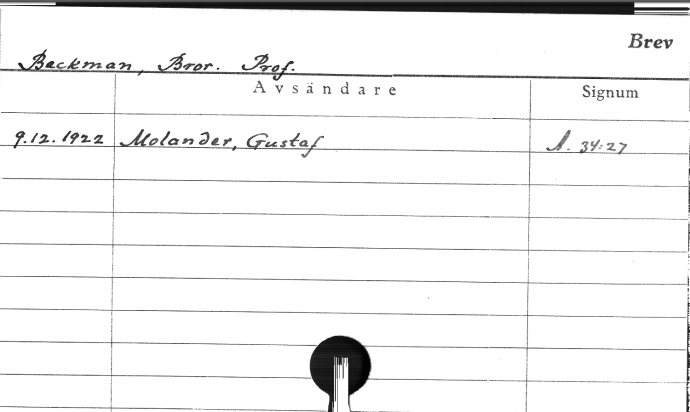 Brev
Backman, Bror. Prof.
Avsändare Signum
9.12.1922 Molander, Gustaf A. 34:27